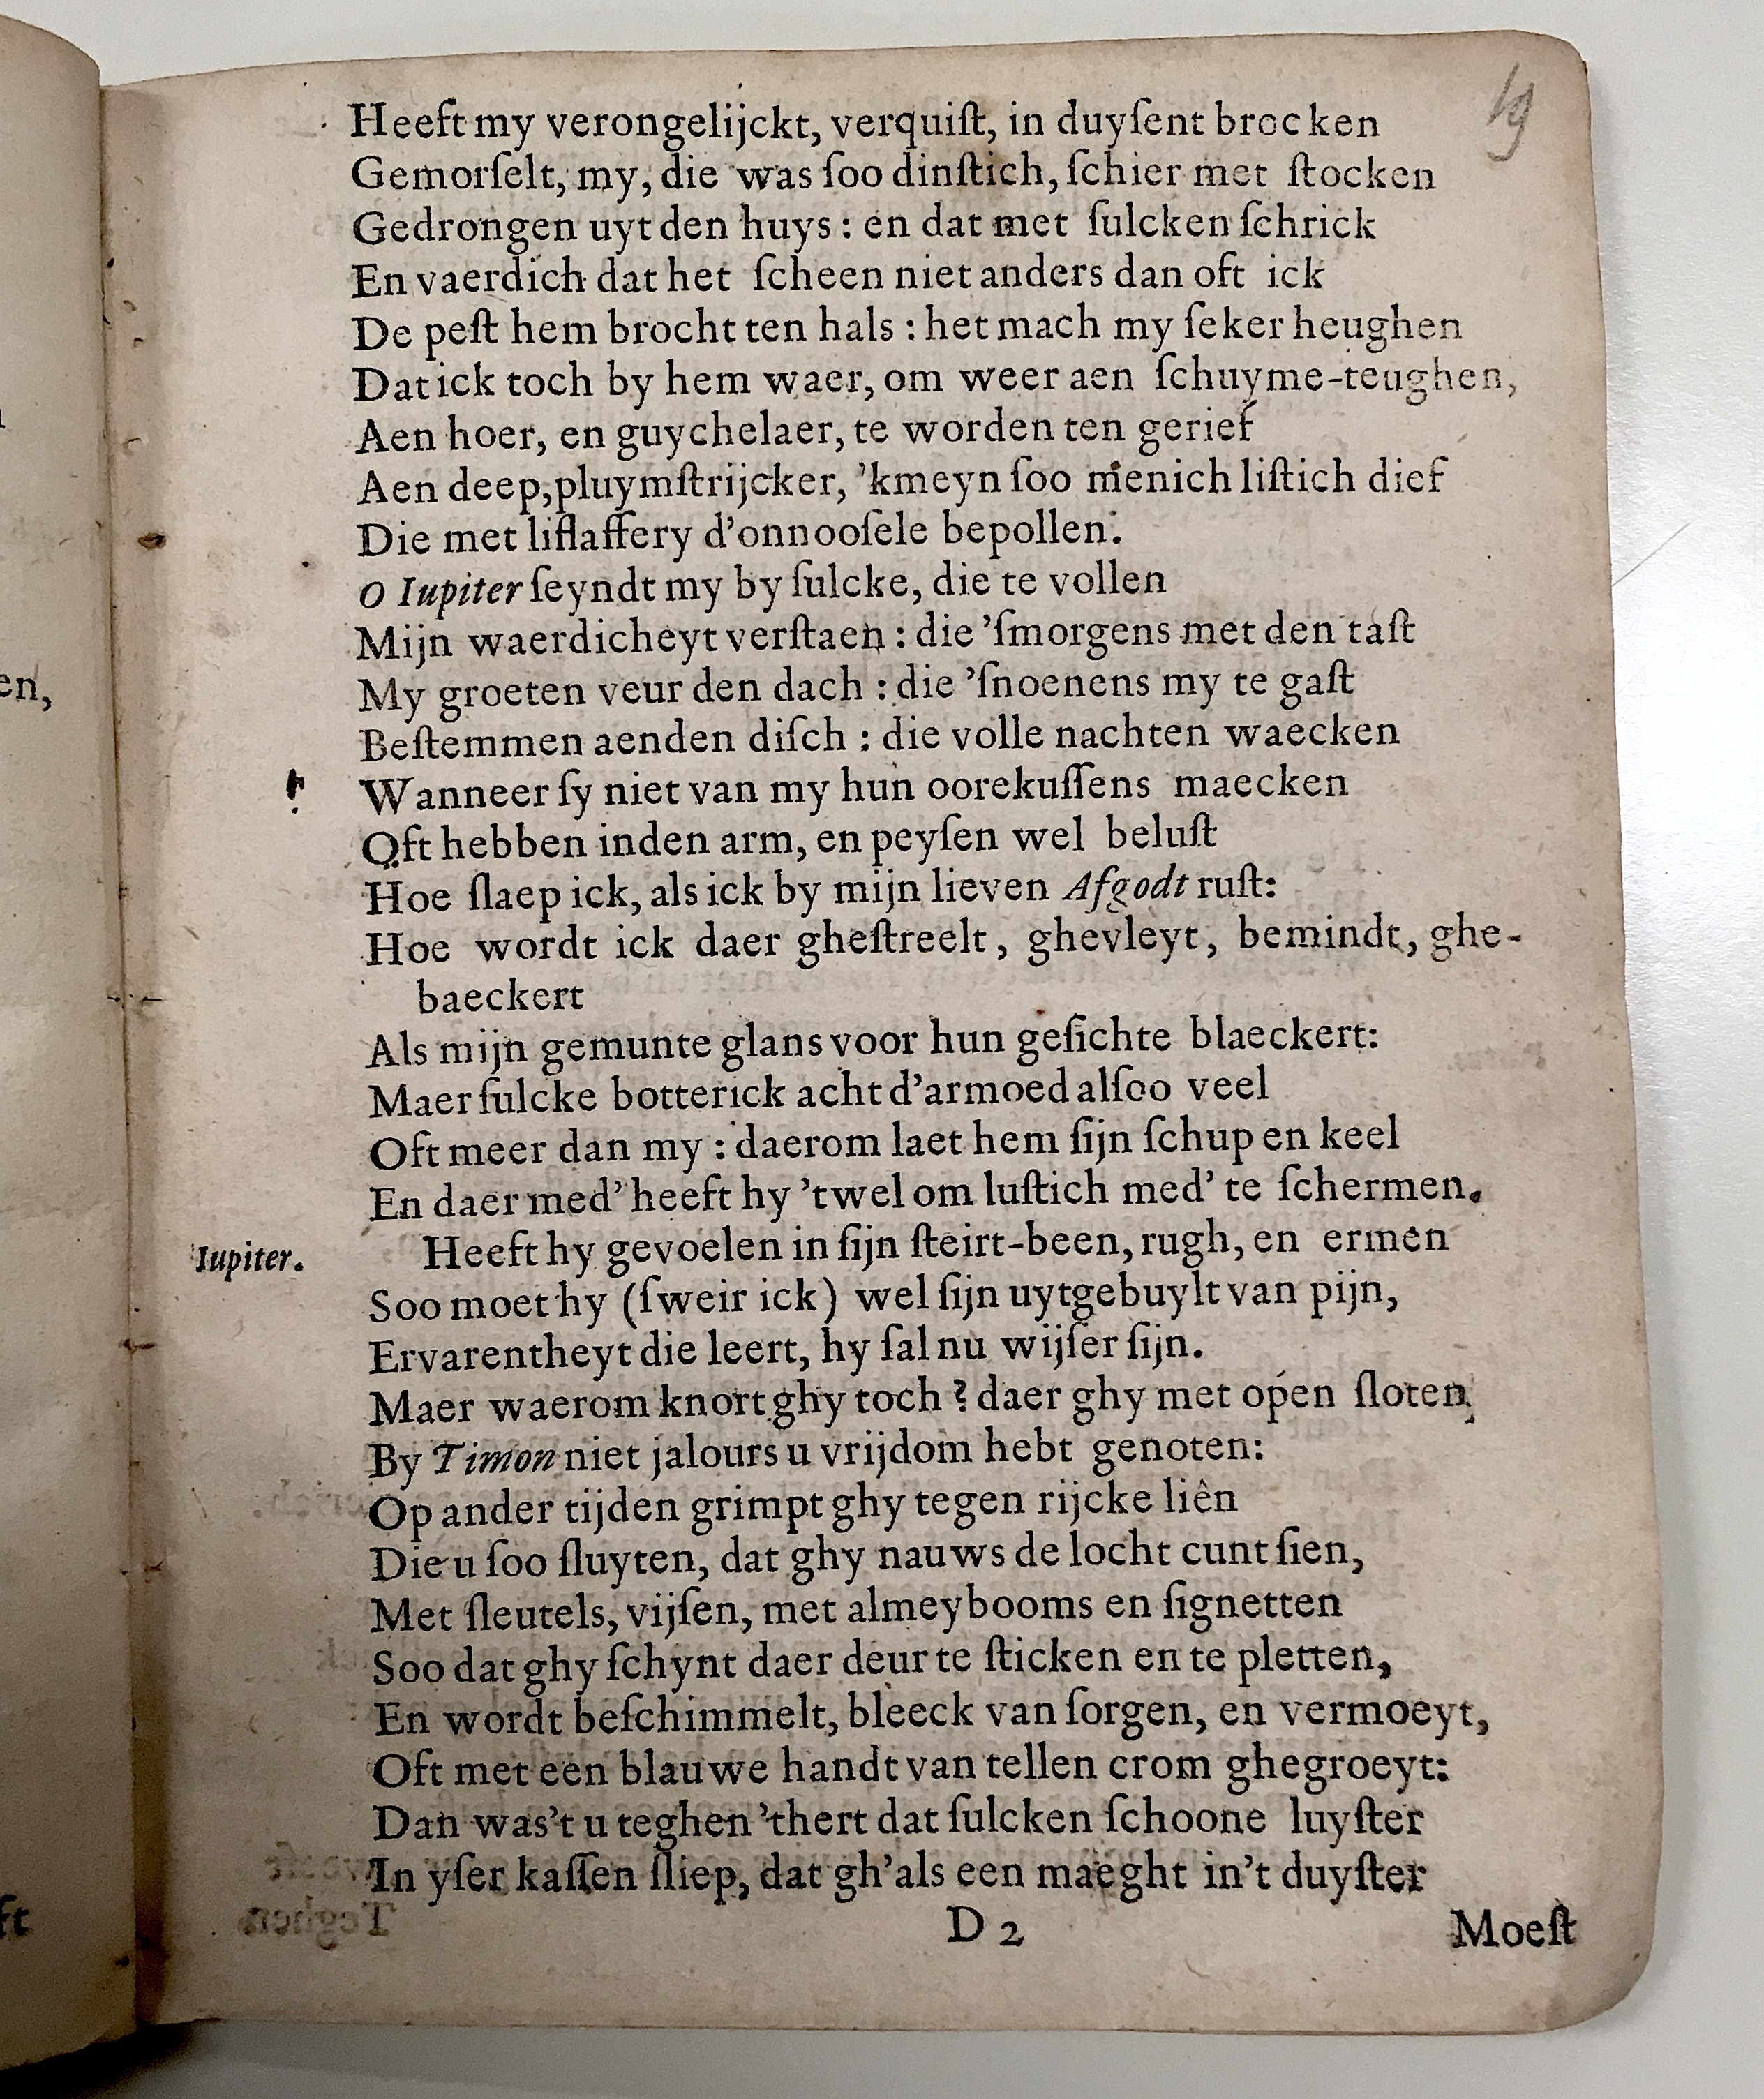 19
Heeft my verongelijckt, verquiſt, in duyſent brocken
Gemorſelt, my, die was ſoo dinſtich, ſchier met ſtocken
Gedrongen uyt den huys : en dat met ſulcken ſchrick
En vaerdich dat het ſcheen niet anders dan oft ick
De peſt hem brocht ten hals : het mach my ſeker heughen
Dat ick toch by hem waer, om weer aen ſchuyme-teughen,
Aen hoer, en guychelaer, te worden ten gerief
Aen deep, pluymſtrijcker, 'kmeyn ſoo menich liſtich dief
Die met liflaffery d'onnooſele bepollen.
O Iupiter ſeyndt my by ſulcke, die te vollen
Mijn waerdicheyt verſtaen : die 'ſmorgens met den taſt
My groeten veur den dach : die 'ſnoenens my te gaſt
Beſtemmen aenden diſch : die volle nachten waecken
Wanneer ſy niet van my hun oorekuſſens maecken
Oft hebben inden arm, en peyſen wel beluſt
Hoe ſlaep ick, als ick by mijn lieven Afgodt ruſt:
Hoe wordt ick daer gheſtreelt, ghevleyt, bemindt, ghe-
baeckert
Als mijn gemunte glans voor hun geſichte blaeckert:
Maer ſulcke botterick acht d'armoed alſoo veel
Oft meer dan my : daerom laet hem ſijn ſchup en keel
En daer med' heeft hy 't wel om luſtich med' te ſchermen.
Iupiter. Heeft hy gevoelen in ſijn ſteirt-been, rugh, en ermen
Soo moet hy (ſweir ick) wel ſijn uytgebuylt van pijn,
Ervarentheyt die leert, hy ſal nu wijſer ſijn.
Maer waerom knort ghy toch ? daer ghy met open ſloten
By Timon niet jalours u vrijdom hebt genoten:
Op ander tijden grimpt ghy tegen rijcke liên
Die u ſoo ſluyten, dat ghy nauws de locht cunt ſien,
Met ſleutels, vijſen, met almeybooms en ſignetten
Soo dat ghy ſchynt daer deur te ſticken en te pletten,
En wordt beſchimmelt, bleeck van ſorgen, en vermoeyt,
Oft met een blauwe handt van tellen crom ghegroeyt:
Dan was't u teghen 'thert dat ſulcken ſchoone luyſter
In yſer kaſſen ſliep, dat gh'als een maeght in't duyſter
D 2 Moeſt